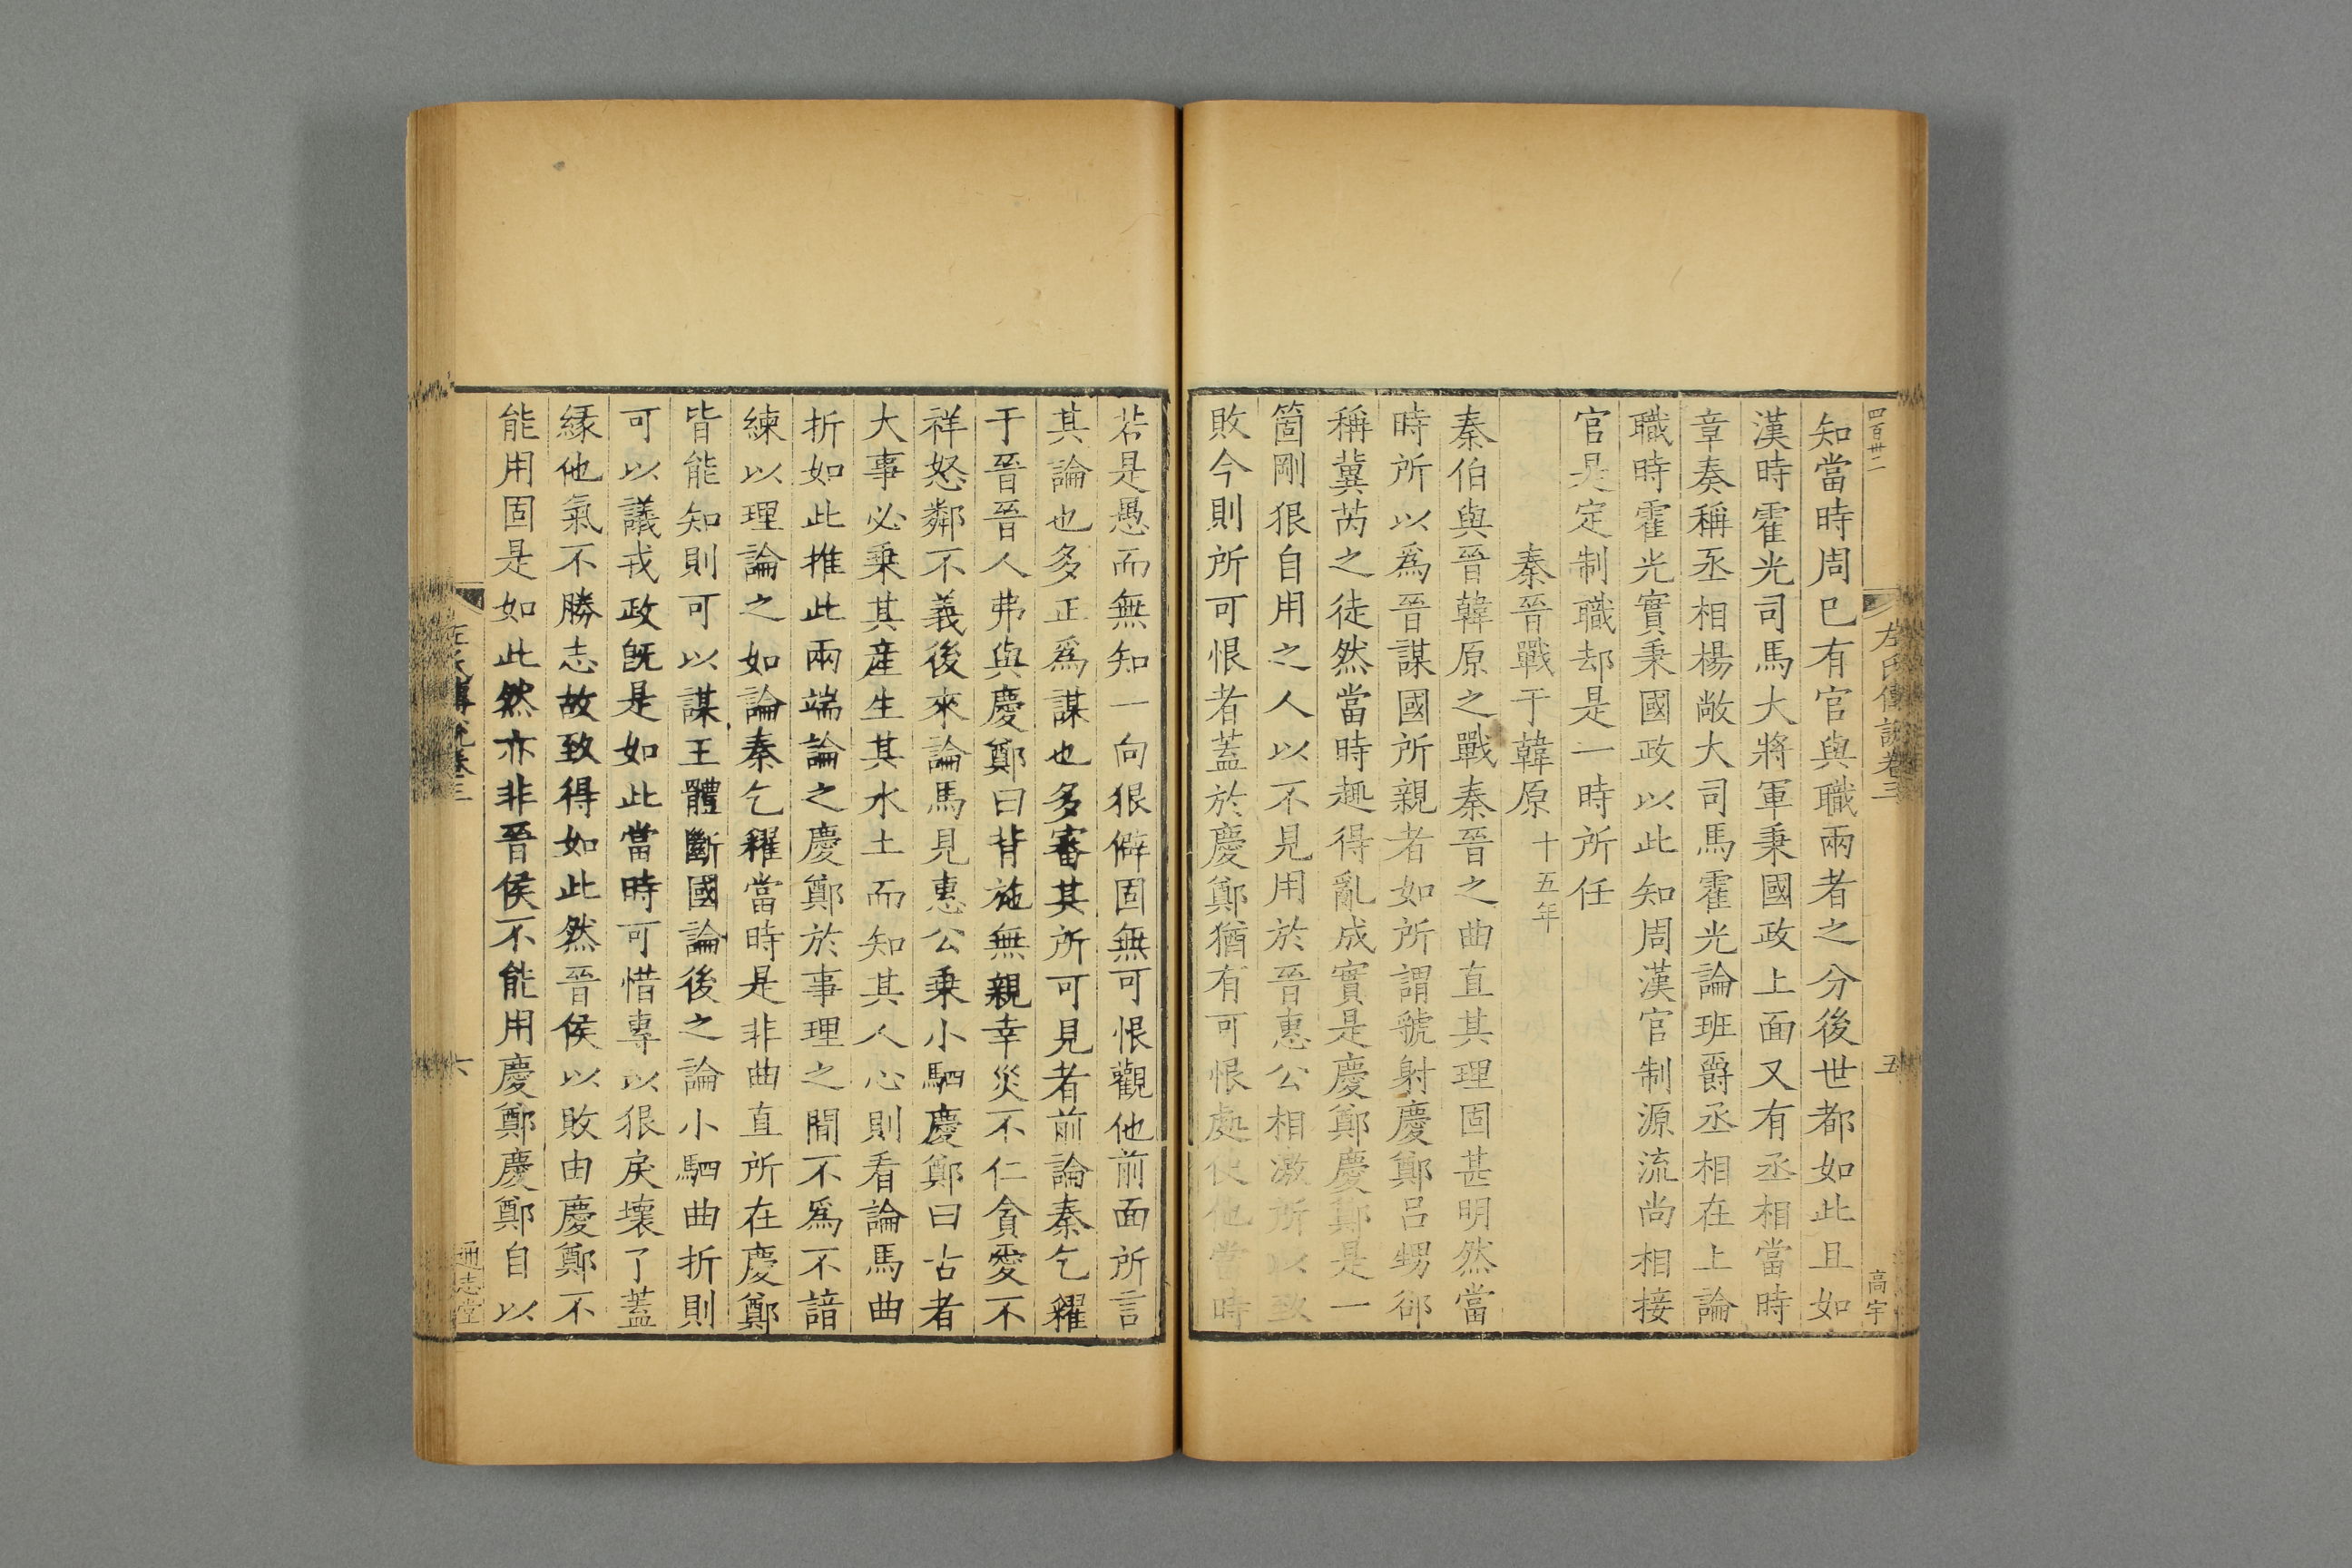 四百卅二
左氏傳說卷三
五
高宇
知當時周已有官與職兩者之分後世都如此且如
漢時霍光司馬大將軍秉國政上面又有丞相當時
章奏稱丞相楊敞大司馬霍光論班爵丞相在上論
職時霍光實秉國政以此知周漢官制源流尚相接
官是定制職却是一時所任
秦晉戰于韓原十五年
秦伯與晉韓原之戰秦晉之曲直其理固甚明然當
時所以爲晉謀國所親者如所謂虢射慶鄭呂甥郤
稱冀芮之徒然當時趣得亂成實是慶鄭慶鄭是一
箇剛狠自用之人以不見用於晉惠公相激所以致
敗今則所可恨者蓋於慶鄭猶有可恨處使他當時
若是愚而無知一向狠僻固無可恨觀他前面所言
其論也多正爲謀也多審其所可見者前論秦乞糴
于晉晉人弗與慶鄭曰背施無親幸災不仁貪愛不
祥怒鄰不義後來論馬見惠公乗小駟慶鄭曰古者
大事必乗其產生其水土而知其人心則看論馬曲
折如此推此兩端論之慶鄭於事理之間不爲不諳
練以理論之如論秦乞糴當時是非曲直所在慶鄭
皆能知則可以謀王體斷國論後之論小駟曲折則
可以議戎政旣是如此當時可惜專以狠戾壞了蓋
緣他氣不勝志故致得如此然晉侯以敗由慶鄭不
能用固是如此然亦非晉侯不能用慶鄭慶鄭自以
左氏傳說卷三
六
通志堂